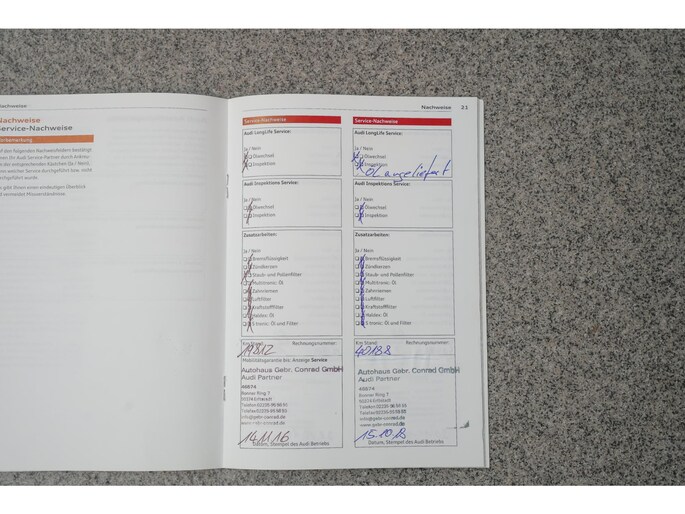 Nachweise
Nachweise
Service-Nachweise
Nachweise 23
Service-Nachweise
Audi LongLife Service:
Ja / Nein
Ölwechsel
Inspektion
Audi Inspektions Service:
Ja / Nein
Ölwechsel
Inspektion
Zusatzarbeiten:
Ja / Nein
Bremsflüssigkeit
Zündkerzen
Staub- und Pollenfilter
Multitronic: Öl
Zahnriemen
Luftfilter
Kraftstofffilter
Haldex: Öl
S tronic: Öl und Filter
Km Stand: Rechnungsnummer:
19812
Mobilitätsgarantie bis: Anzeige Service
Autohaus Gebr. Conrad GmbH
Audi Partner
Bonner Ring 7
Erftstadt
info@gebr-conrad.de
www.gebr-conrad.de
14.11.16
Datum, Stempel des Audi Betriebs
Service-Nachweise
Audi LongLife Service:
Ja / Nein
Ölwechsel
Inspektion
Öl angeliefert
Audi Inspektions Service:
Ja / Nein
Ölwechsel
Inspektion
Zusatzarbeiten:
Ja / Nein
Bremsflüssigkeit
Zündkerzen
Staub- und Pollenfilter
Multitronic: Öl
Zahnriemen
Luftfilter
Kraftstofffilter
Haldex: Öl
S tronic: Öl und Filter
Km Stand: Rechnungsnummer:
40188
Autohaus Gebr. Conrad GmbH
Audi Partner
Bonner Ring 7
Erftstadt
info@gebr-conrad.de
www.gebr-conrad.de
15.10.18
Datum, Stempel des Audi Betriebs